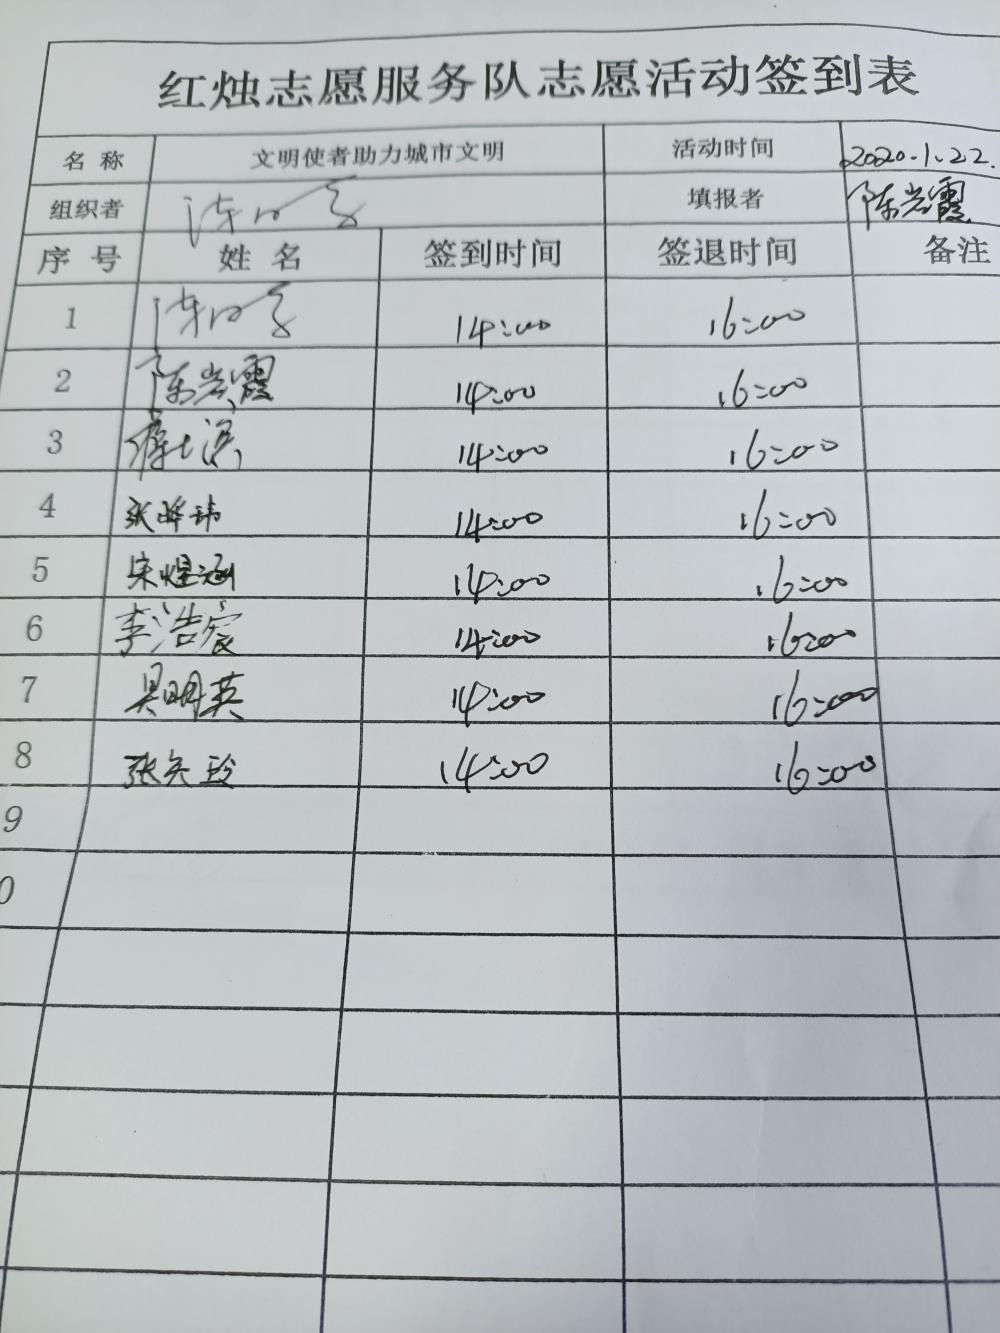 红烛志愿服务队志愿活动签到表
名 称 文明使者助力城市文明 活动时间 2020.1.22.
组织者 填报者 陈岩霞
序 号 姓 名 签到时间 签退时间 备注
1 14:00 16:00
2 陈岩霞 14:00 16:00
3 14:00 16:00
4 张晔玮 14:00 16:00
5 宋煜涵 14:00 16:00
6 李浩宸 14:00 16:00
7 吴明英 14:00 16:00
8 张矣玲 14:00 16:00
9
0